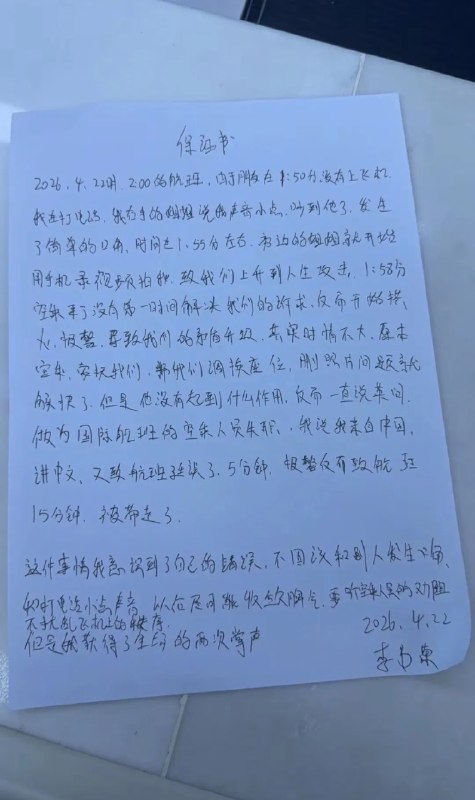 保证书
2026.4.22号,2:00的航班,由于朋友在1:50分没有上飞机,
我在打电话,我右手的姐姐说我声音小点,吵到他了,发生
了简单的口角,时间在1.55分左右,旁边的姐姐就开始
用手机录视频拍我,致我们上升到人生攻击,1:58分
空乘来了没有第一时间解决我们的诉求,反而
火,报警,导致我们的矛盾升级,其实事情不大,原本
空乘,安抚我们,帮我们调换座位,删照片问题就
解决了,但是他没有起到什么作用,反而一直说英问,
做为国际航班的空乘人员失职,我说我来自中国,
讲中文,又致航班延误了,5分钟,报警后有致航班
15分钟,被带走了,
这件事情我意识到了自己的错误,不因该和别人发生口角,
和打电话小点声音,以后尽可能收敛脾气,要听空乘人员的劝阻
不扰乱飞机上的秩序.
但是我获得了全场的两次掌声
2026.4.22